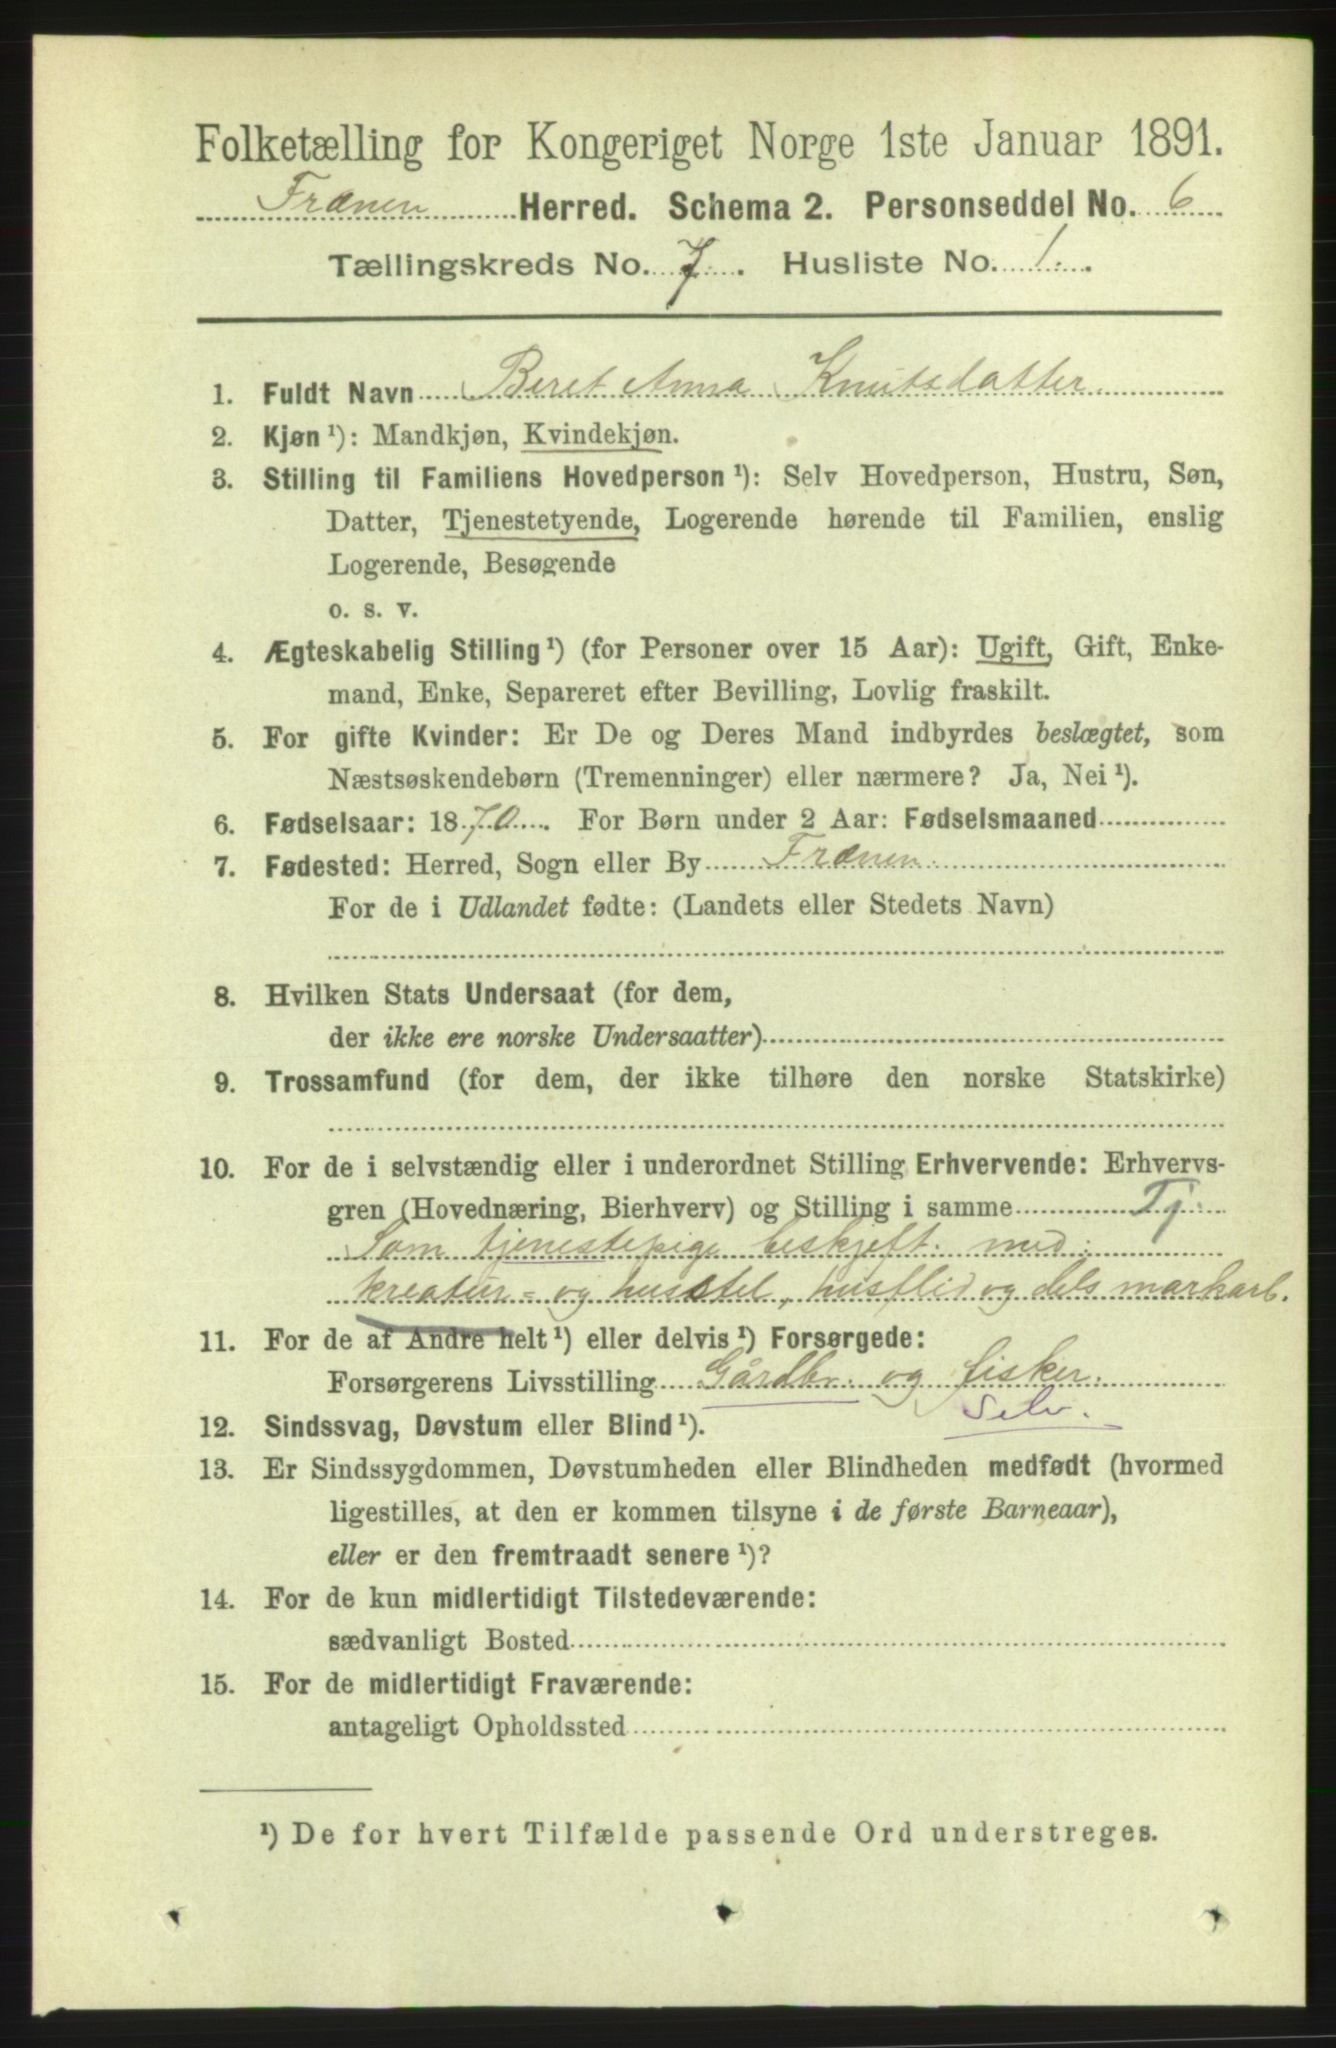 Folketælling for Kongeriget Norge 1ste Januar 1891.
Frænen Herred. Schema 2. Personseddel No. 6
Tællingskreds No. 7. Husliste No. 1.
1. Fuldt Navn Beret Anna Knutsdatter.
2. Kjøn ¹): Mandkjøn, Kvindekjøn.
3. Stilling til Familiens Hovedperson ¹): Selv Hovedperson, Hustru, Søn,
Datter, Tjenestetyende, Logerende hørende til Familien, enslig
Logerende, Besøgende
o. s. v.
4. Ægteskabelig Stilling ¹) (for Personer over 15 Aar): Ugift, Gift, Enke-
mand, Enke, Separeret efter Bevilling, Lovlig fraskilt.
5. For gifte Kvinder: Er De og Deres Mand indbyrdes beslægtet, som
Næstsøskendebørn (Tremenninger) eller nærmere? Ja, Nei ¹).
6. Fødselsaar: 1870. For Børn under 2 Aar: Fødselsmaaned
7. Fødested: Herred, Sogn eller By Frænen.
For de i Udlandet fødte: (Landets eller Stedets Navn)
8. Hvilken Stats Undersaat (for dem,
der ikke ere norske Undersaatter)
9. Trossamfund (for dem, der ikke tilhøre den norske Statskirke)
10. For de i selvstændig eller i underordnet Stilling Erhvervende: Erhvervs-
gren (Hovednæring, Bierhverv) og Stilling i samme Tj.
Som tjenestepige beskjeft. med
kreatur- og husstel, husflid og dels markarb.
11. For de af Andre helt ¹) eller delvis ¹) Forsørgede:
Forsørgerens Livsstilling Gårdbr. og fisker.
Selv.
12. Sindssvag, Døvstum eller Blind ¹).
13. Er Sindssygdommen, Døvstumheden eller Blindheden medfødt (hvormed
ligestilles, at den er kommen tilsyne i de første Barneaar),
eller er den fremtraadt senere ¹)?
14. For de kun midlertidigt Tilstedeværende:
sædvanligt Bosted
15. For de midlertidigt Fraværende:
antageligt Opholdssted
¹) De for hvert Tilfælde passende Ord understreges.